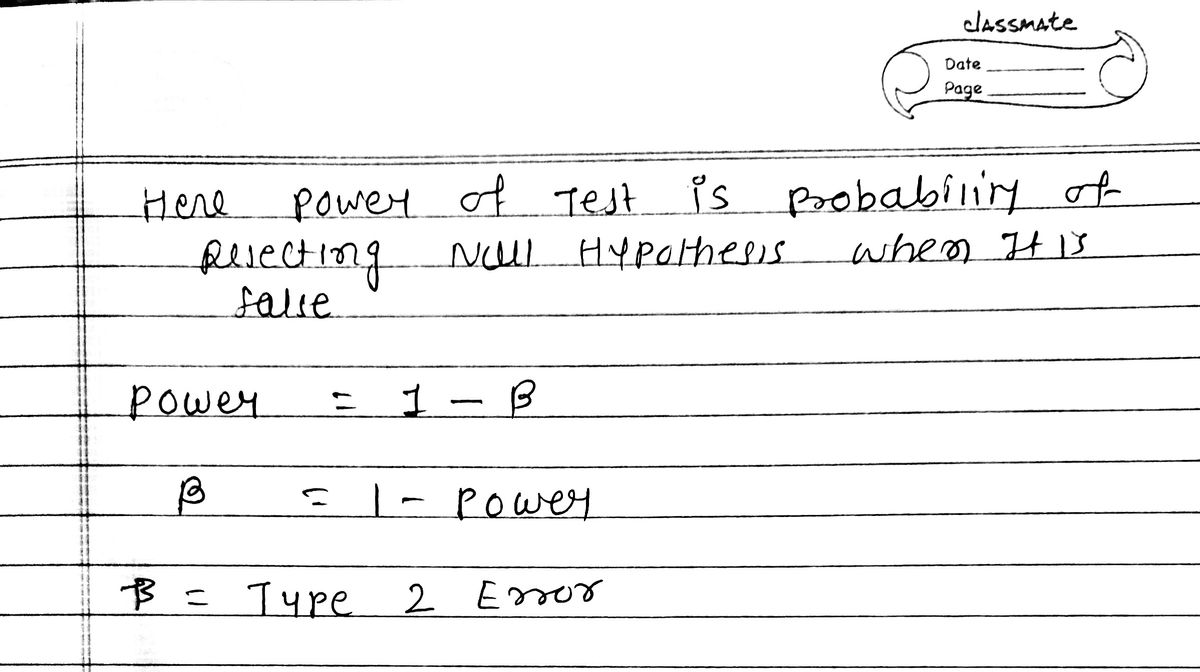 classmate
Date
Page
Here power of Test is Probability of
Rejecting Null Hypothesis when It is
false
Power = 1 - β
β = 1 - Power
β = Type 2 Error